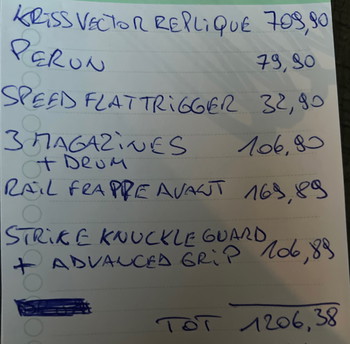 KRISS VECTOR REPLIQUE 709,90
PERUN 79,90
SPEED FLAT TRIGGER 32,90
3 MAGAZINES 106,90
+ DRUM
RAIL FRAPPE AVANT 169,89
STRIKE KNUCKLE GUARD
+ ADVANCED GRIP 106,89
TOT 1206,38